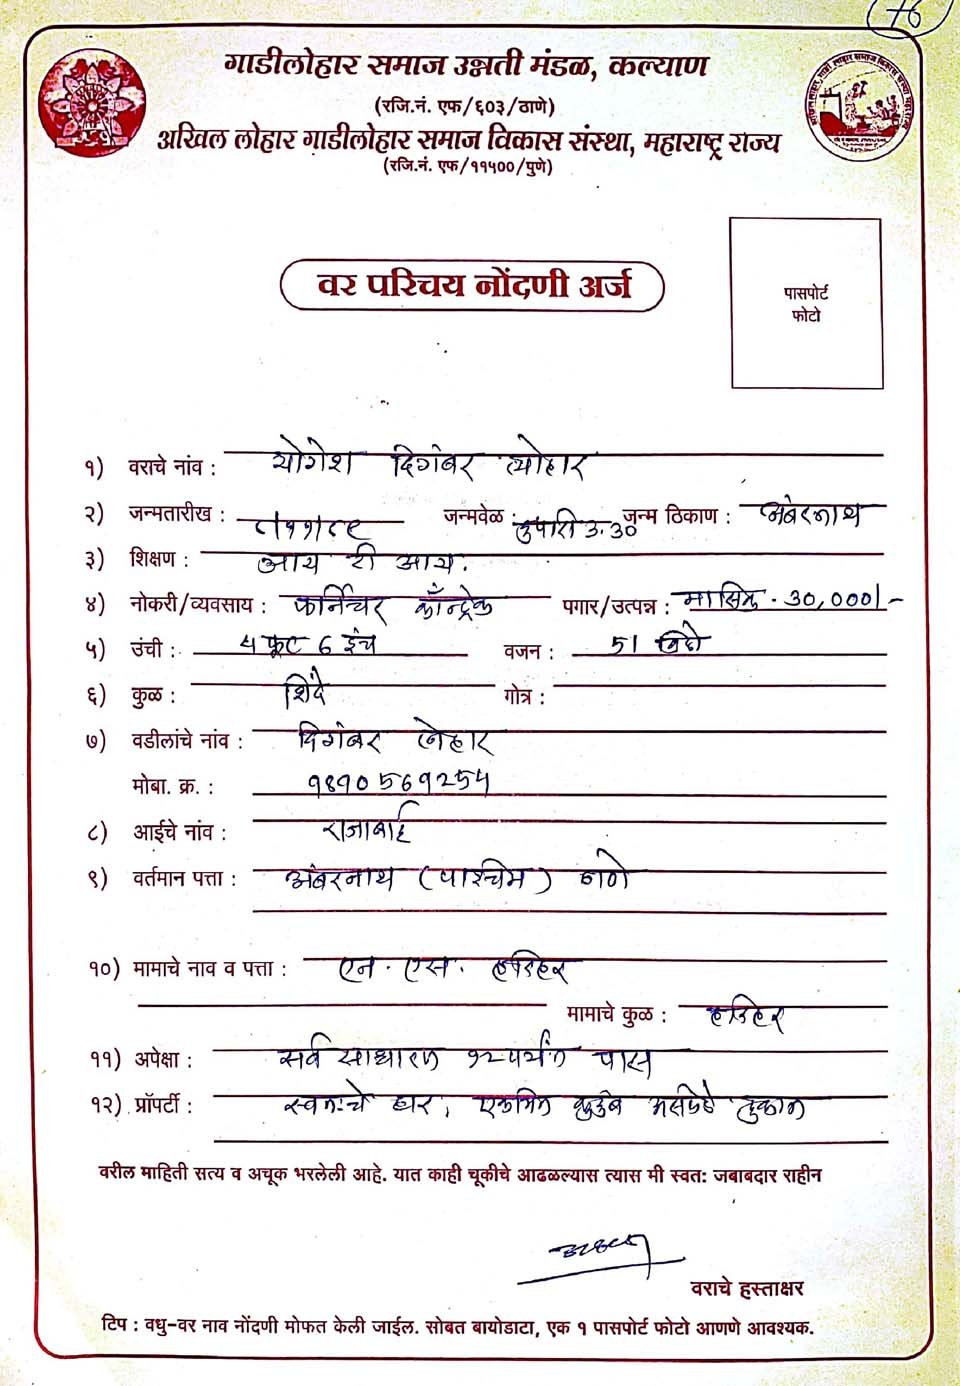 76
गाडीलोहार समाज उन्नती मंडळ, कल्याण
(रजि.नं. एफ/६०३/ठाणे)
अखिल लोहार गाडीलोहार समाज विकास संस्था, महाराष्ट्र राज्य
(रजि.नं. एफ/११५००/पुणे)
पासपोर्ट
फोटो
वर परिचय नोंदणी अर्ज
१) वराचे नांव : योगेश दिगंबर लोहार
२) जन्मतारीख : ८/११/८९ जन्मवेळ : दुपारी 3.30 जन्म ठिकाण : अंबरनाथ
३) शिक्षण : आय टी आय.
४) नोकरी/व्यवसाय : फर्निचर कॉन्ट्रेक पगार/उत्पन्न : मासिक. 30,000/-
५) उंची : ५ फूट 6 इंच वजन : 51 किलो
६) कुळ : शिंदे गोत्र :
७) वडीलांचे नांव : दिगंबर लोहार
मोबा. क्र. : ९8९0569254
८) आईचे नांव : राजाबाई
९) वर्तमान पत्ता : अंबरनाथ (पाश्चिम) ठाणे
१०) मामाचे नाव व पत्ता : एन. एस. हरिहर
मामाचे कुळ : हरिहर
११) अपेक्षा : सर्व साधारण १२पर्यंत पास
१२) प्रॉपर्टी : स्वतःचे घर, एकत्रित कुटुंब दुकान
वरील माहिती सत्य व अचूक भरलेली आहे. यात काही चूकीचे आढळल्यास त्यास मी स्वत: जबाबदार राहीन
वराचे हस्ताक्षर
टिप : वधु-वर नाव नोंदणी मोफत केली जाईल. सोबत बायोडाटा, एक १ पासपोर्ट फोटो आणणे आवश्यक.